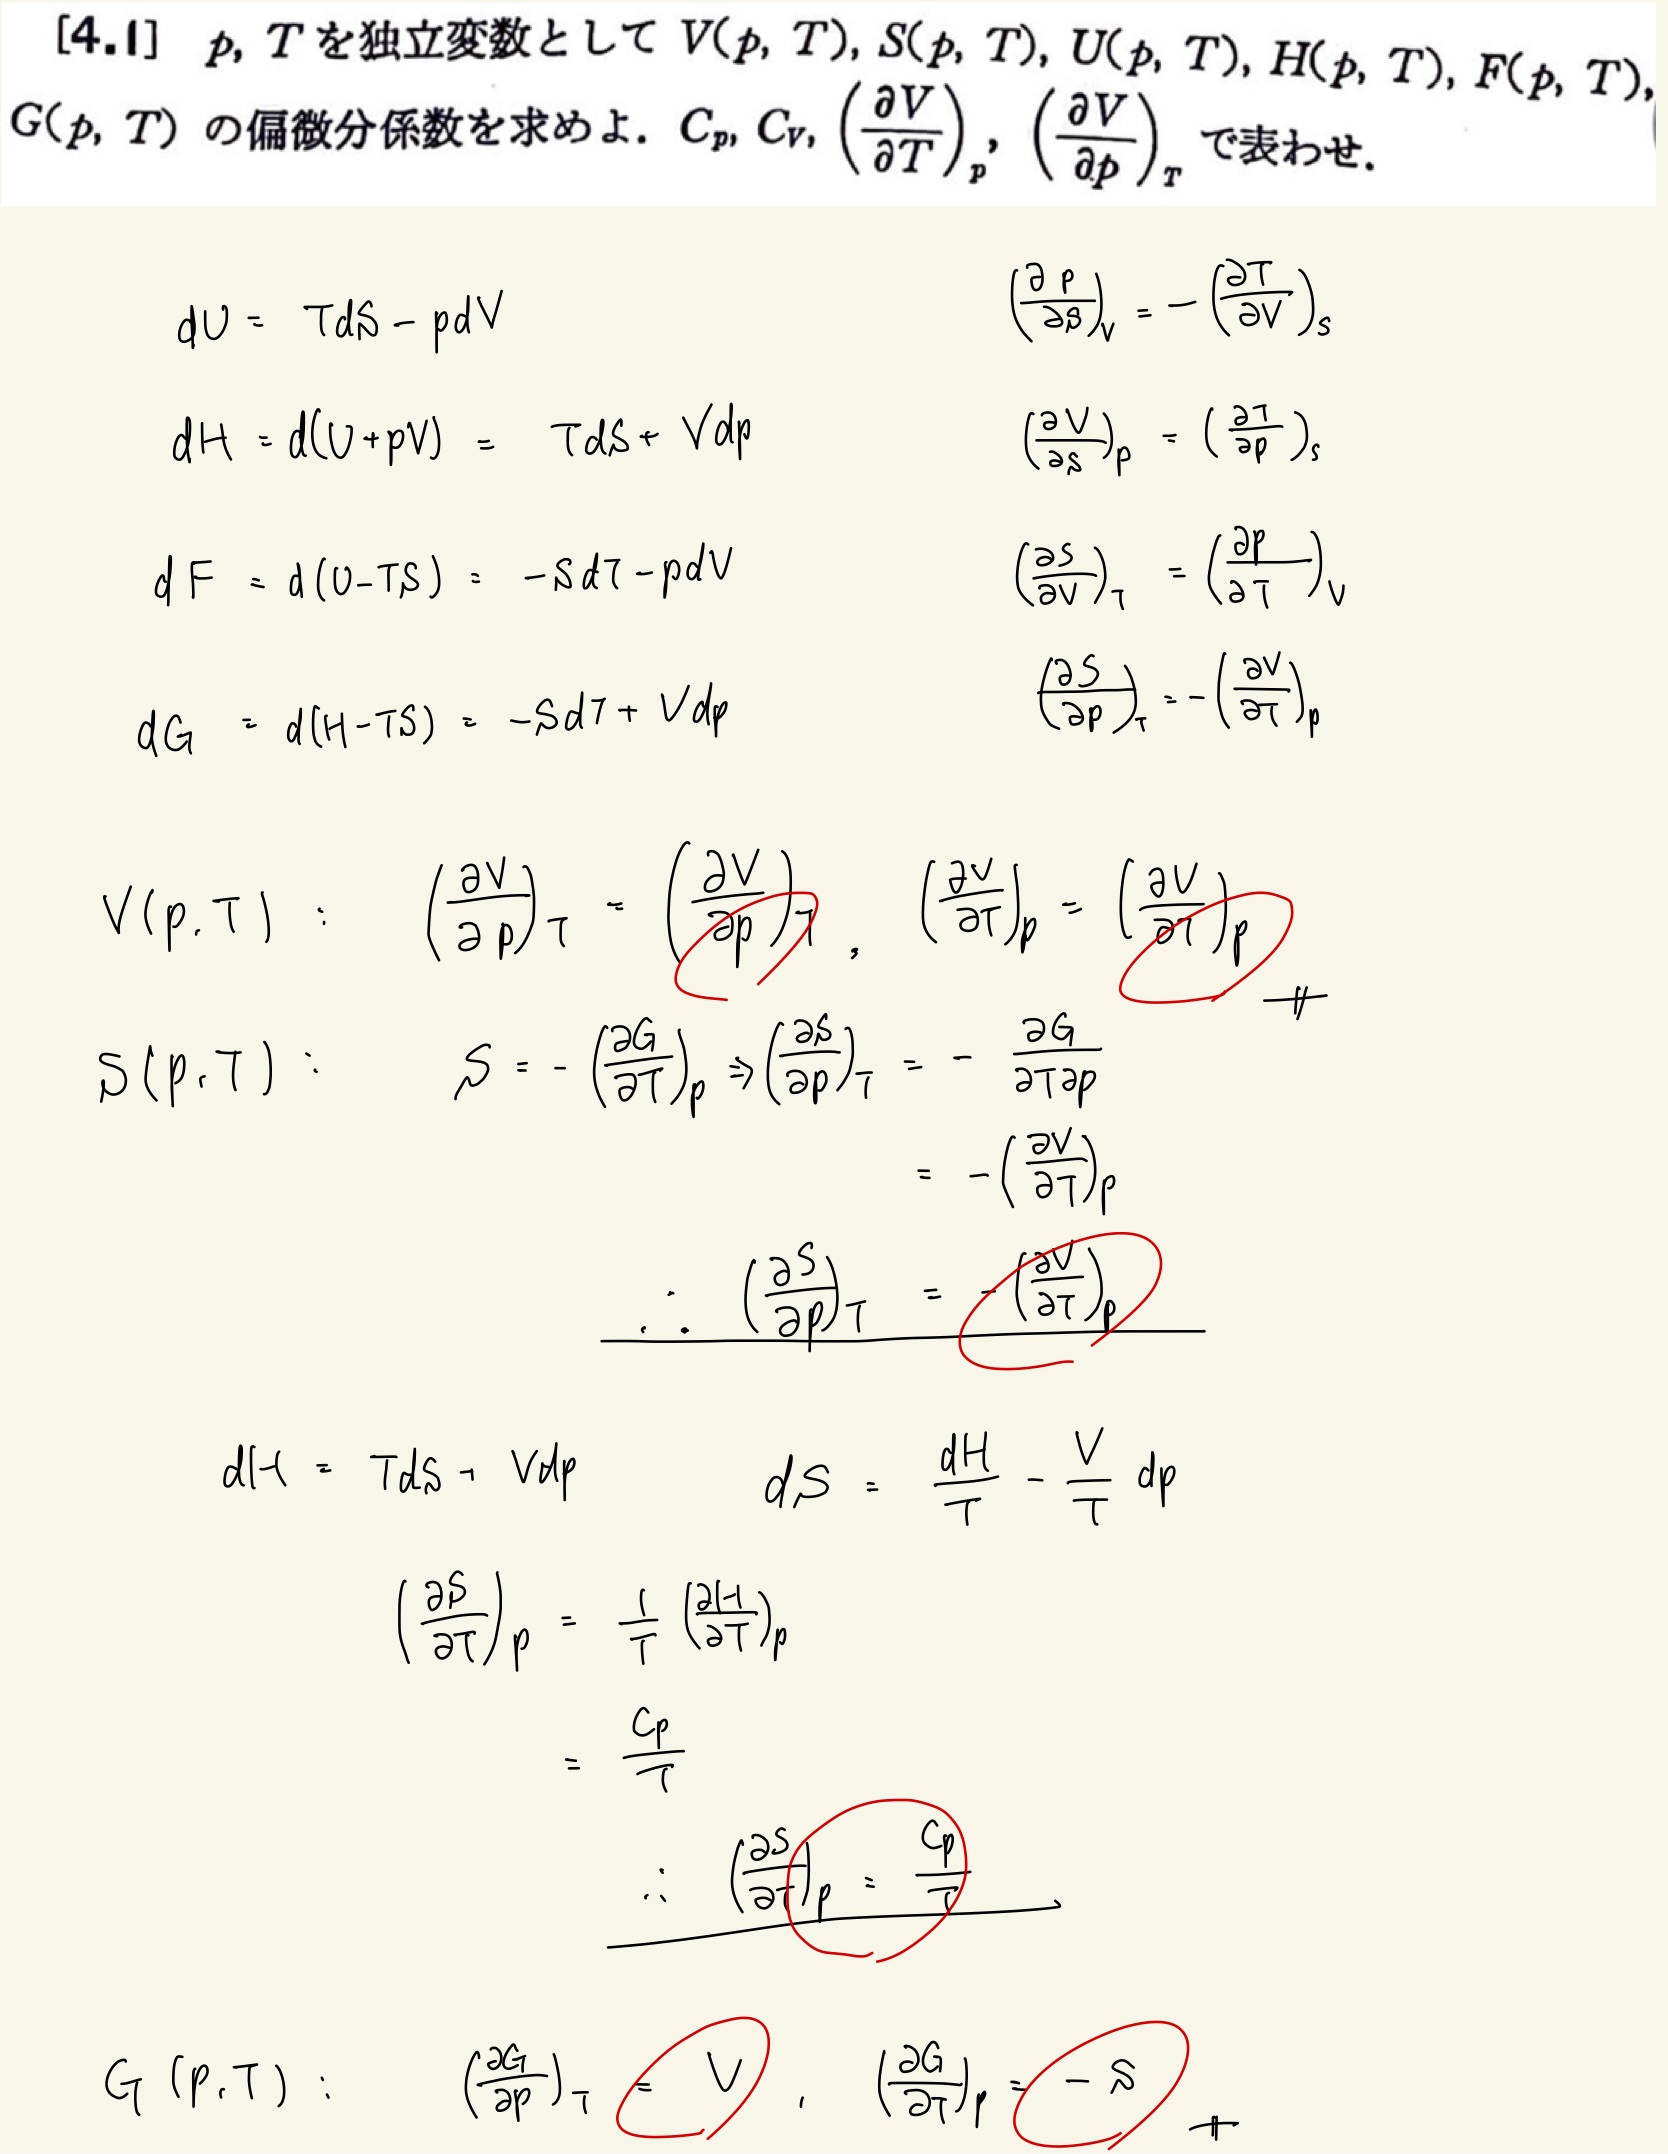 [4.1] p, T を独立変数として V(p, T), S(p, T), U(p, T), H(p, T), F(p, T),
G(p, T) の偏微分係数を求めよ. C_p, C_V, (∂V/∂T)_p, (∂V/∂p)_T で表わせ.
dU = TdS − pdV (∂p/∂S)_V = −(∂T/∂V)_S
dH = d(U+pV) = TdS + Vdp (∂V/∂S)_p = (∂T/∂p)_S
dF = d(U−TS) = −SdT − pdV (∂S/∂V)_T = (∂p/∂T)_V
dG = d(H−TS) = −SdT + Vdp (∂S/∂p)_T = −(∂V/∂T)_p
V(p.T) : (∂V/∂p)_T = (∂V/∂p)_T , (∂V/∂T)_p = (∂V/∂T)_p
S(p.T) : S = −(∂G/∂T)_p ⇒ (∂S/∂p)_T = − ∂G/∂T∂p
= −(∂V/∂T)_p
∴ (∂S/∂p)_T = −(∂V/∂T)_p
dH = TdS + Vdp dS = dH/T − V/T dp
(∂S/∂T)_p = 1/T (∂H/∂T)_p
= Cp/T
∴ (∂S/∂T)_p = Cp/T
G(p.T) : (∂G/∂p)_T = V , (∂G/∂T)_p = −S